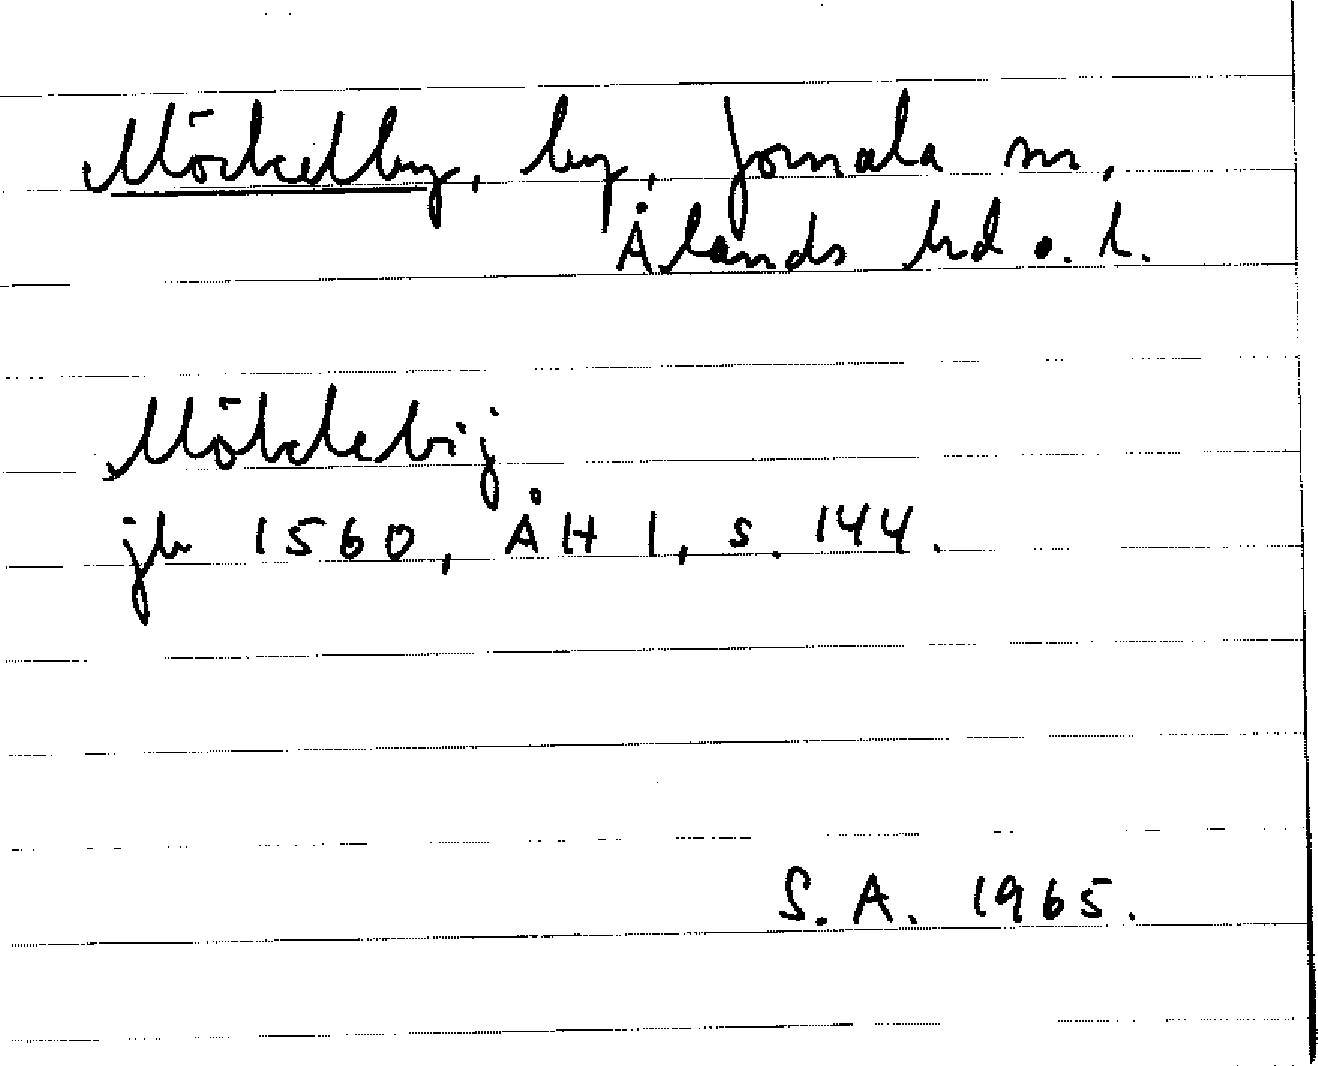 Möckelby, by, Jomala sn,
Ålands hd o. l.
Mökclebij
jb 1560, ÅH 1, s. 144.
S.A. 1965.